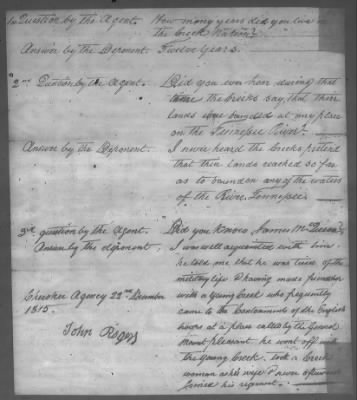 1st Question by the Agent. How many years did you live in
the Creek Nation?
Answer by the Deponent. Twelve Years.
2nd Question by the Agent. Did you ever hear during that
time the Creeks say, that their
lands were bounded at any place
on the Tennessee River?
Answer by the Deponent. I never heard the Creeks pretend
that their lands reached so far
as to bound on any of the waters
of the River Tennessee.
3rd question by the Agent. Did you know James McQueen?
Answer by the deponent, I was well acquainted with him,
he told me that he was tired of the
military life & having made
with a young Creek who frequently
came to the Cantonments of the English
at a place called by the
Mount pleasant he went off with
the Young Creek, took a Creek
woman as his wife & never afterwards
joined his regiment.
Cherokee Agency 22nd December
1815.
John Rogers